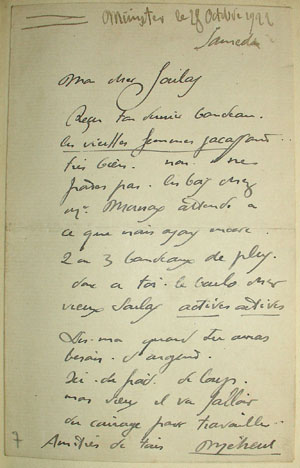 Munster le 28 Octobre 1922
Samedi
Mon cher Soulas
Reçu ton dernier bandeau.
les vieilles femmes jacassant
très bien. non ne
pas. les bas chez
Mr. attends a
ce que nous ayons encore
2 ou 3 bandeaux de plus.
donc a toi. le mon
vieux Soulas actives actives
Dis-moi quand tu auras
besoin d'argent.
Ici. du froid. de loup.
mon vieux il va falloir
du courage pour travailler.
Amitiés de tous Méheut
7